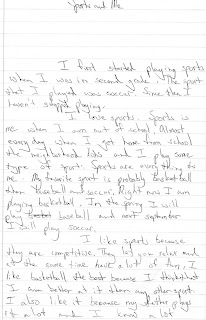 Sports and Me
I first started playing sports
when I was in second grade. The sport
that I played was soccer. Since then I
haven't stopped playing.
I love sports. Sports is
me when I am out of school. Almost
every day when I get home from school
the neighborhood kids and I play some
type of sport. Sports are everything to
me. My favorite sport is probably basketball
then baseball and soccer. Right now I am
playing basketball. In the spring I will
play baseball and next september
I will play soccer.
I like sports because
they are competitive. They let you relax and
at the same time have a lot of fun. I
like basketball the best because I think that
I am better at it than any other sport.
I also like it because my father plays
it a lot and I know a lot